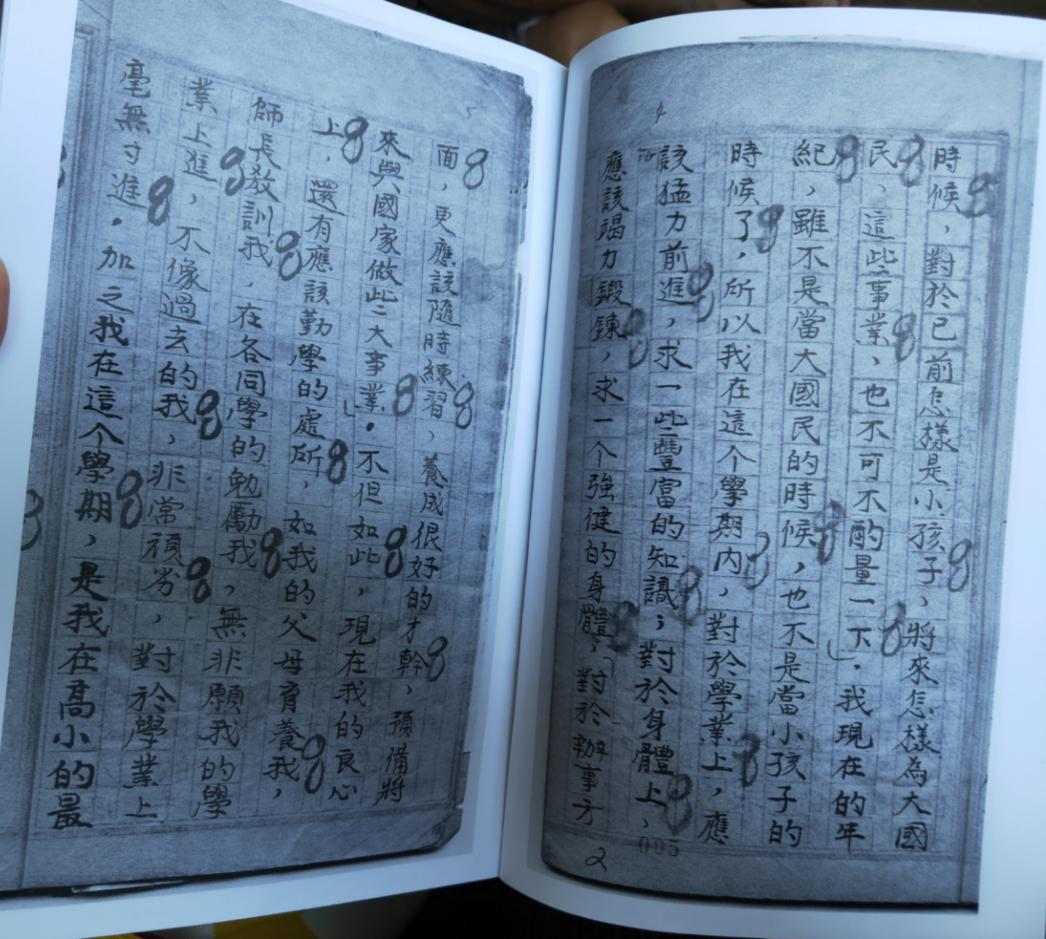 4
時候，對於已前怎樣是小孩子，將來怎樣為大國
民，這些事業，也不可不酌量一下．我現在的年
紀，雖不是當大國民的時候，也不是當小孩子的
時候了，所以我在這个學期內，對於學業上，應
該猛力前進，求一些豐富的知識；對於身體上，
應該竭力鍛鍊，求一个強健的身體，對於辦事方
005
2
5
面，更應該隨時練習，養成很好的才幹，預備將
來與國家做些大事業．不但如此，現在我的良心
上，還有應該勤學的處所，如我的父母育養我，
師長教訓我，在各同學的勉勵我，無非願我的學
業上進，不像過去的我，非常頑劣，對於學業上
毫無寸進．加之我在這个學期，是我在高小的最